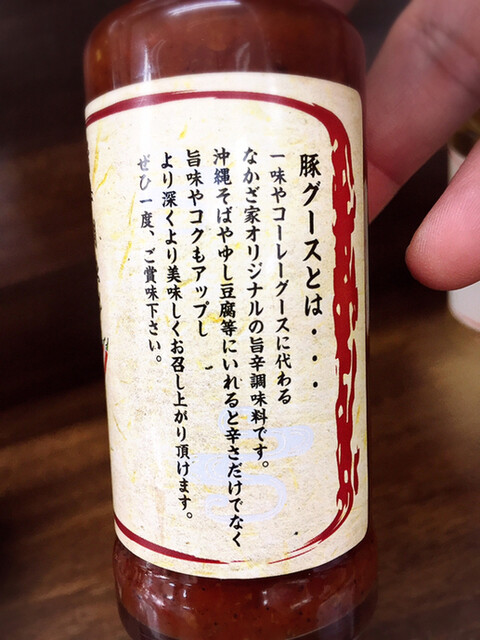 豚グースとは・・・
一味やコーレーグースに代わる
なかざ家オリジナルの旨辛調味料です。
沖縄そばやゆし豆腐等にいれると辛さだけでなく
旨味やコクもアップし
より深くより美味しくお召し上がり頂けます。
ぜひ一度、ご賞味下さい。